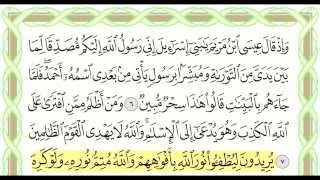 وَإِذْ قَالَ عِيسَى ٱبْنُ مَرْيَمَ يَـٰبَنِىٓ إِسْرَٰٓءِيلَ إِنِّى رَسُولُ ٱللَّهِ إِلَيْكُم مُّصَدِّقًا لِّمَا
بَيْنَ يَدَىَّ مِنَ ٱلتَّوْرَىٰةِ وَمُبَشِّرًۢا بِرَسُولٍ يَأْتِى مِنۢ بَعْدِى ٱسْمُهُۥٓ أَحْمَدُ ۖ فَلَمَّا
جَآءَهُم بِٱلْبَيِّنَـٰتِ قَالُوا۟ هَـٰذَا سِحْرٌ مُّبِينٌ ٦ وَمَنْ أَظْلَمُ مِمَّنِ ٱفْتَرَىٰ عَلَى
ٱللَّهِ ٱلْكَذِبَ وَهُوَ يُدْعَىٰٓ إِلَى ٱلْإِسْلَـٰمِ ۚ وَٱللَّهُ لَا يَهْدِى ٱلْقَوْمَ ٱلظَّـٰلِمِينَ
٧ يُرِيدُونَ لِيُطْفِـُٔوا۟ نُورَ ٱللَّهِ بِأَفْوَٰهِهِمْ وَٱللَّهُ مُتِمُّ نُورِهِۦ وَلَوْ كَرِهَ